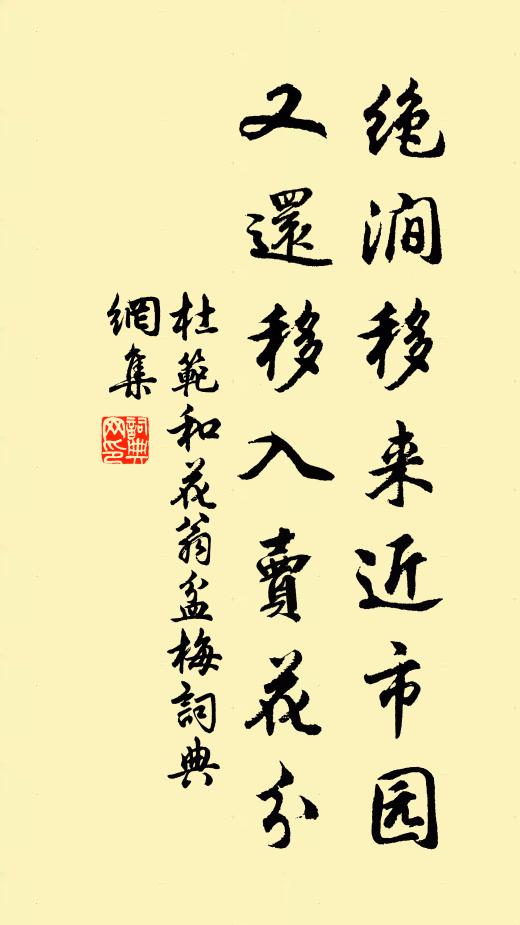 绝涧移来近市园
又還移入賣花分
杜範和花翁盆梅詞典
網集
詞典网印